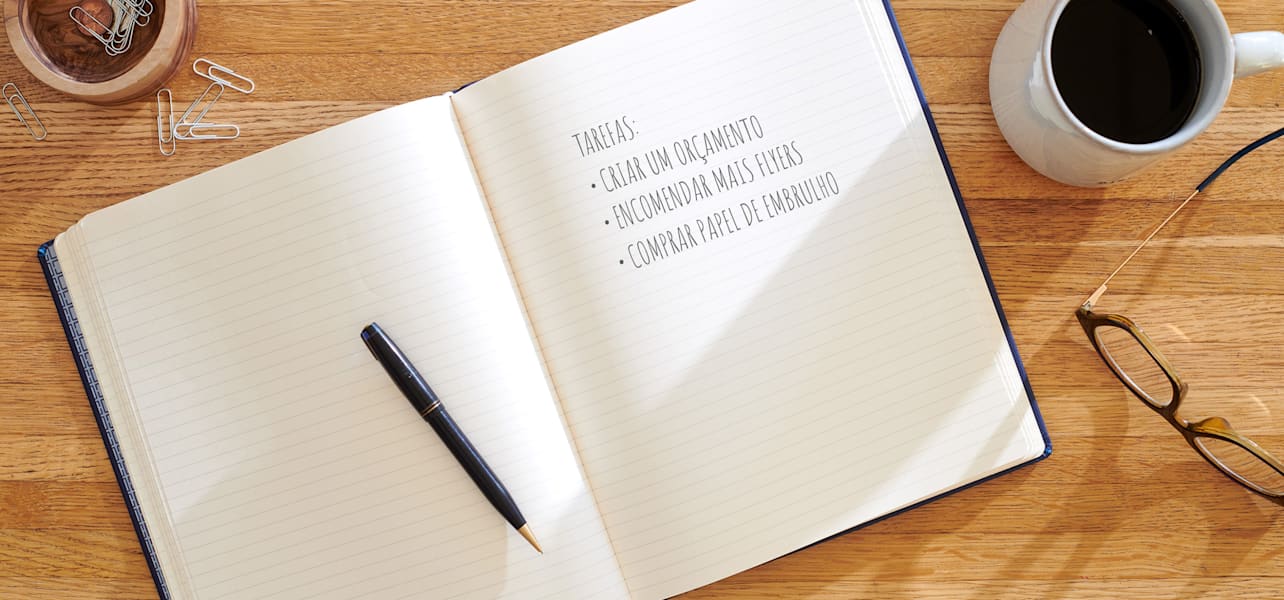 TAREFAS:
• CRIAR UM ORÇAMENTO
• ENCOMENDAR MAIS FLYERS
• COMPRAR PAPEL DE EMBRULHO